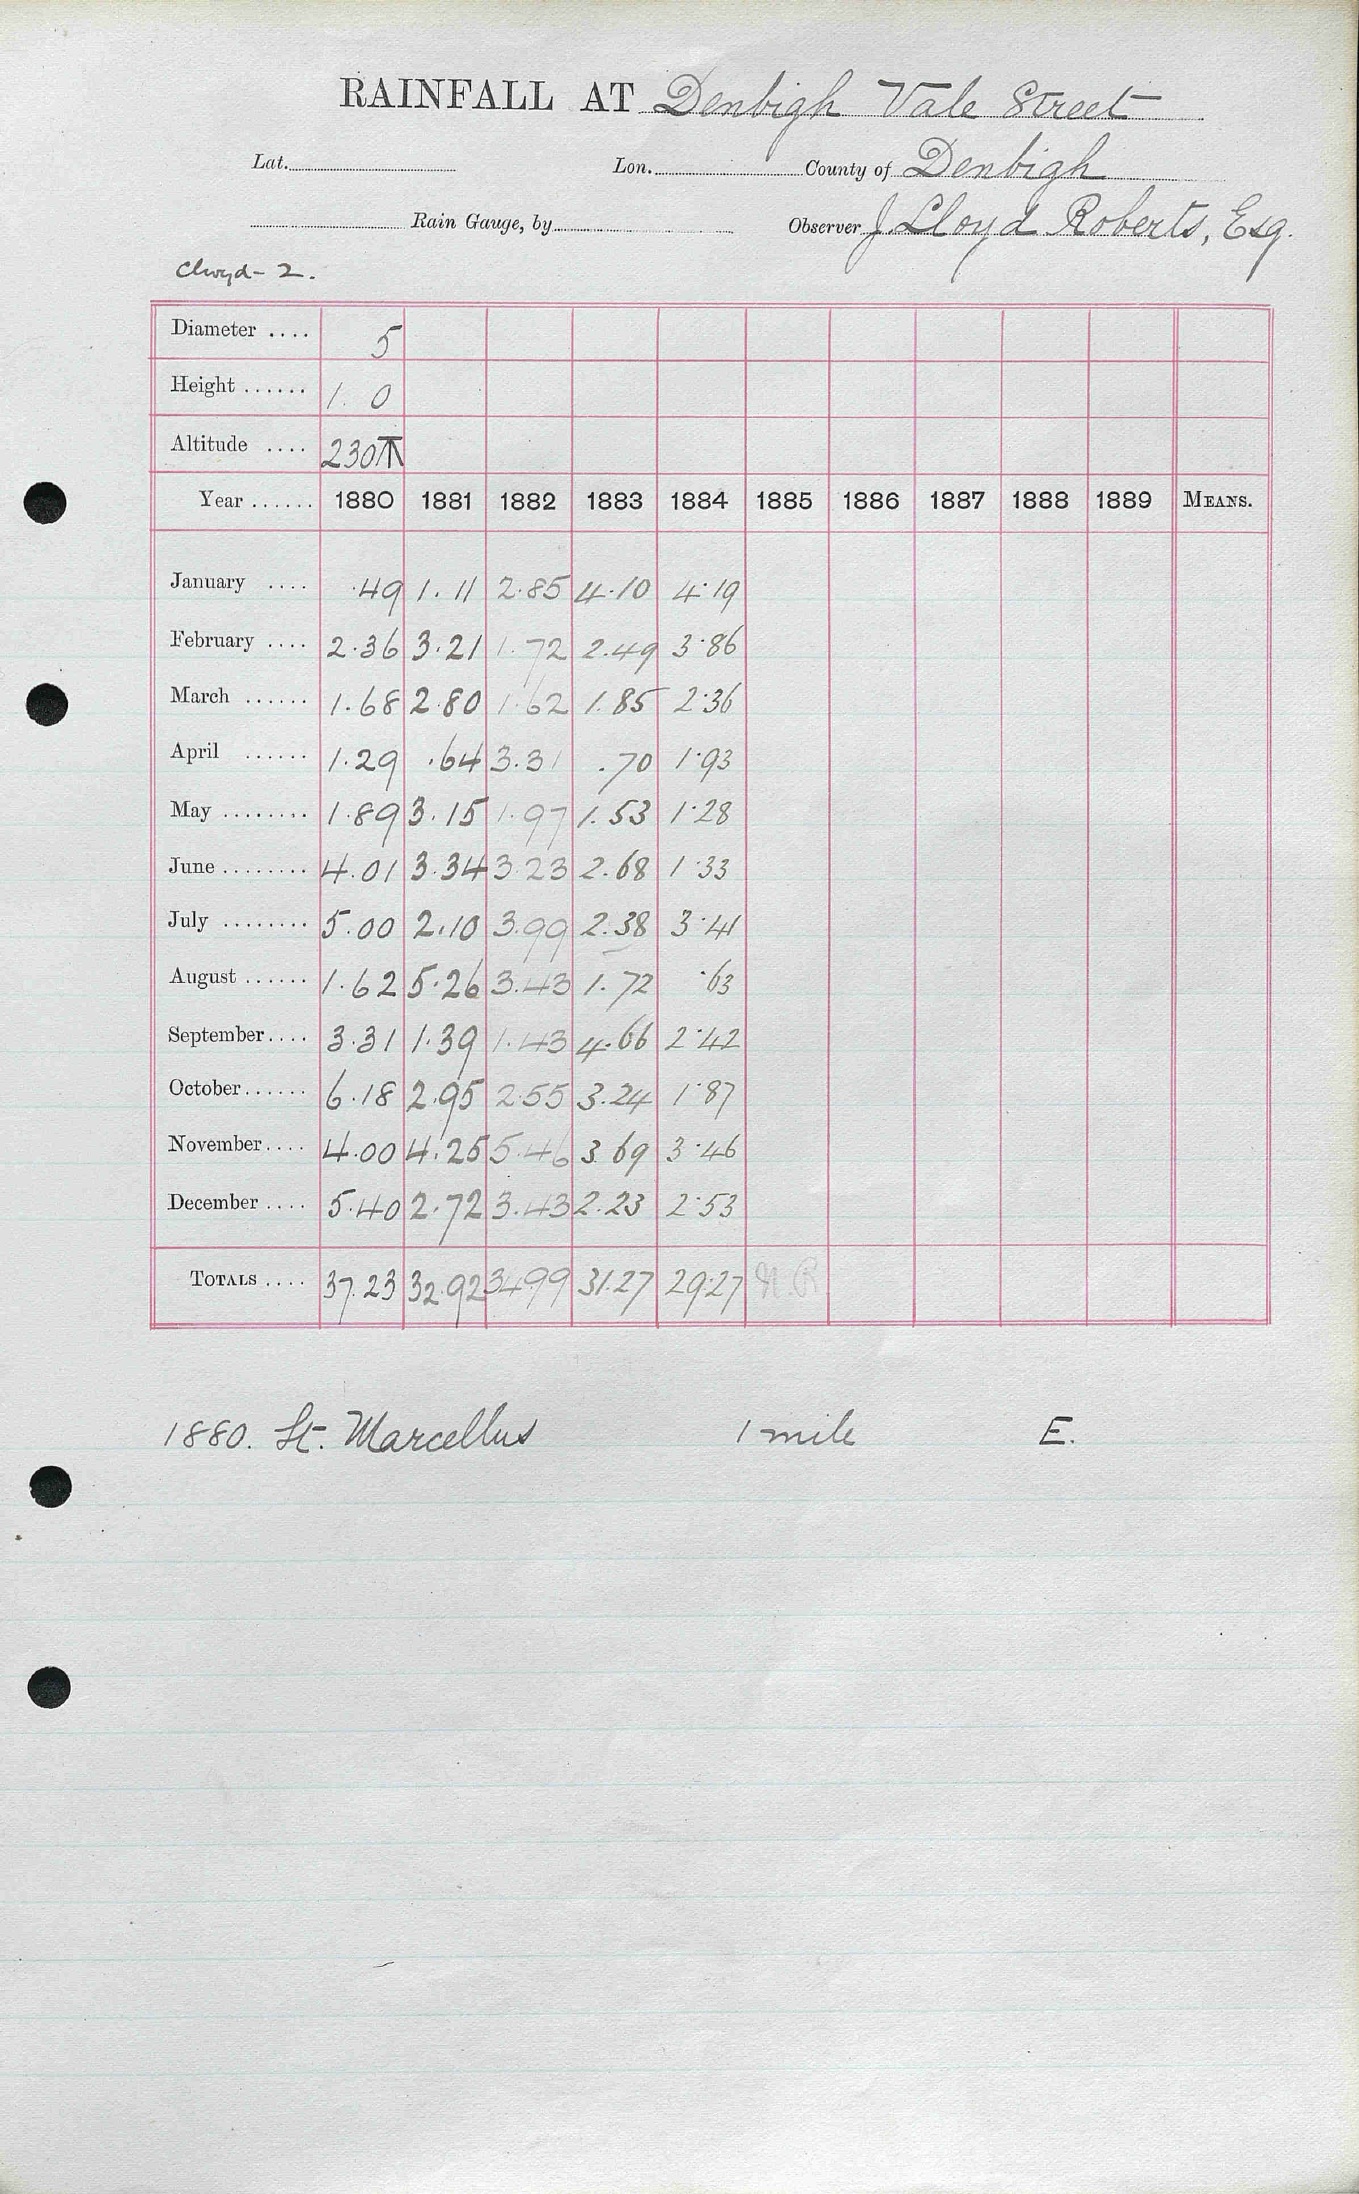 RAINFALL AT Denbigh Vale Street
Lat. Lon. County of Denbigh
Rain Gauge, by Observer J. Lloyd Roberts, Esq.
Clwyd-2.
Diameter .... 5
Height ...... 1. 0
Altitude .... 230
Year ...... 1880 1881 1882 1883 1884 1885 1886 1887 1888 1889 MEANS.
January .... .49 1.11 2.85 4.10 4.19
February .... 2.36 3.21 1.72 2.49 3.86
March ...... 1.68 2.80 1.62 1.85 2.36
April ...... 1.29 .64 3.31 .70 1.93
May ........ 1.89 3.15 1.97 1.53 1.28
June ........ 4.01 3.34 3.23 2.68 1.33
July ........ 5.00 2.10 3.99 2.38 3.41
August ...... 1.62 5.26 3.43 1.72 .63
September.... 3.31 1.39 1.43 4.66 2.42
October...... 6.18 2.95 2.55 3.24 1.87
November.... 4.00 4.25 5.46 3.69 3.46
December .... 5.40 2.72 3.43 2.23 2.53
TOTALS .... 37.23 32.92 34.99 31.27 29.27 N.R.
1880. St. Marcellus 1 mile E.